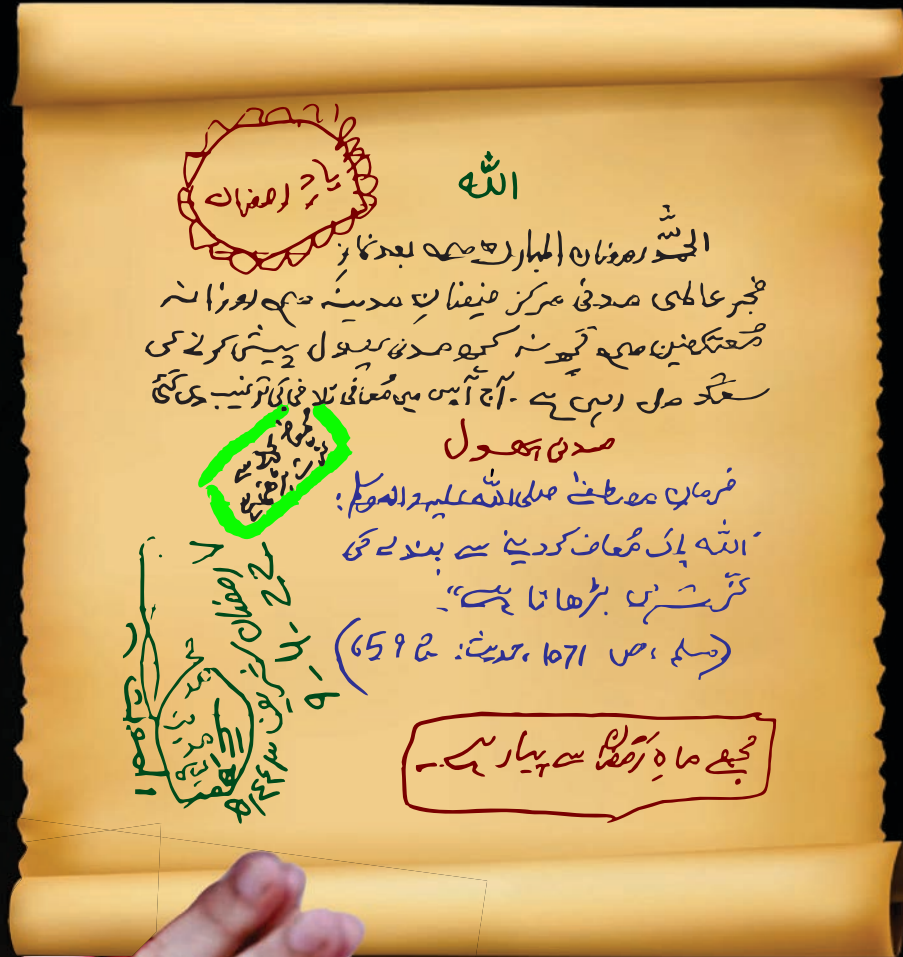 یادِ رمضان
اللہ
الحمدُللہ رمضان المبارک میں بعد نمازِ
فجر عالمی مدنی مرکز فیضانِ مدینہ میں روزانہ
مُعتکفین میں کچھ نہ کچھ مدنی پھول پیش کرنے کی
سعادت مل رہی ہے۔ آج آپس میں مُعافی تلافی کی ترغیب دی گئی
مدنی پھول
فرمانِ مصطفےٰ صلی اللہ علیہ والہ وسلم:
"اللہ پاک مُعاف کر دینے سے بندے کی
عزّت ہی بڑھاتا ہے"۔
(مسلم، ص 1071، حدیث: 659)
مجھے ماہِ رَمَضان سے پیار ہے۔
۷ رمضان شریف ۱۴۴۳ھ
9-4-22